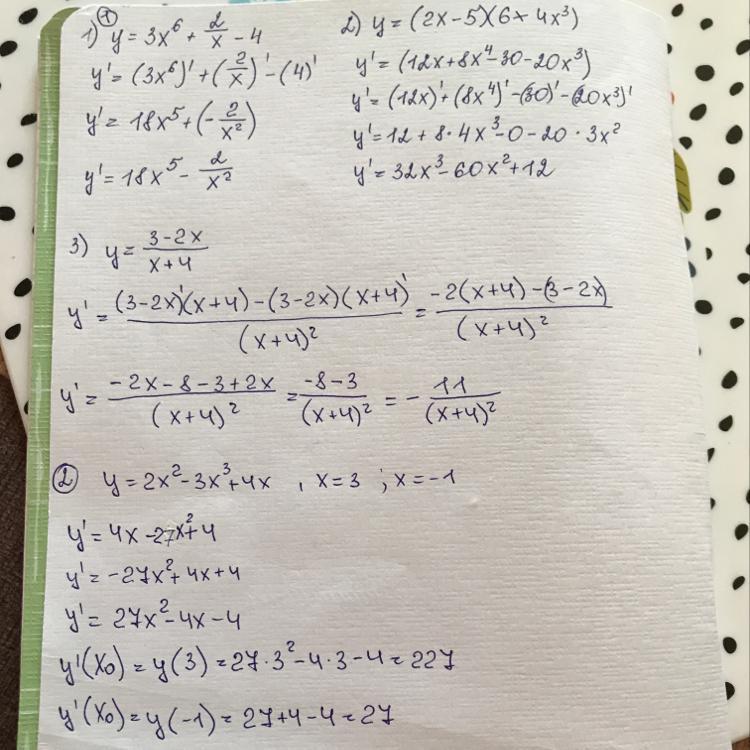 ①
1) y = 3x⁶ + 2/x - 4
y' = (3x⁶)' + (2/x)' - (4)'
y' = 18x⁵ + (- 2/x²)
y' = 18x⁵ - 2/x²
2) y = (2x-5)(6+4x³)
y' = (12x+8x⁴-30-20x³)
y' = (12x)'+(8x⁴)'-(30)'-(20x³)'
y' = 12 + 8·4x³-0-20·3x²
y' = 32x³-60x²+12
3) y = (3-2x)/(x+4)
y' = ((3-2x)'(x+4)-(3-2x)(x+4)')/(x+4)² = (-2(x+4)-(3-2x))/(x+4)²
y' = (-2x-8-3+2x)/(x+4)² = (-8-3)/(x+4)² = - 11/(x+4)²
② y = 2x²-3x³+4x , x=3 ; x=-1
y' = 4x-27x²+4
y' = -27x²+4x+4
y' = 27x²-4x-4
y'(x₀) = y(3) = 27·3²-4·3-4 = 227
y'(x₀) = y(-1) = 27+4-4 = 27